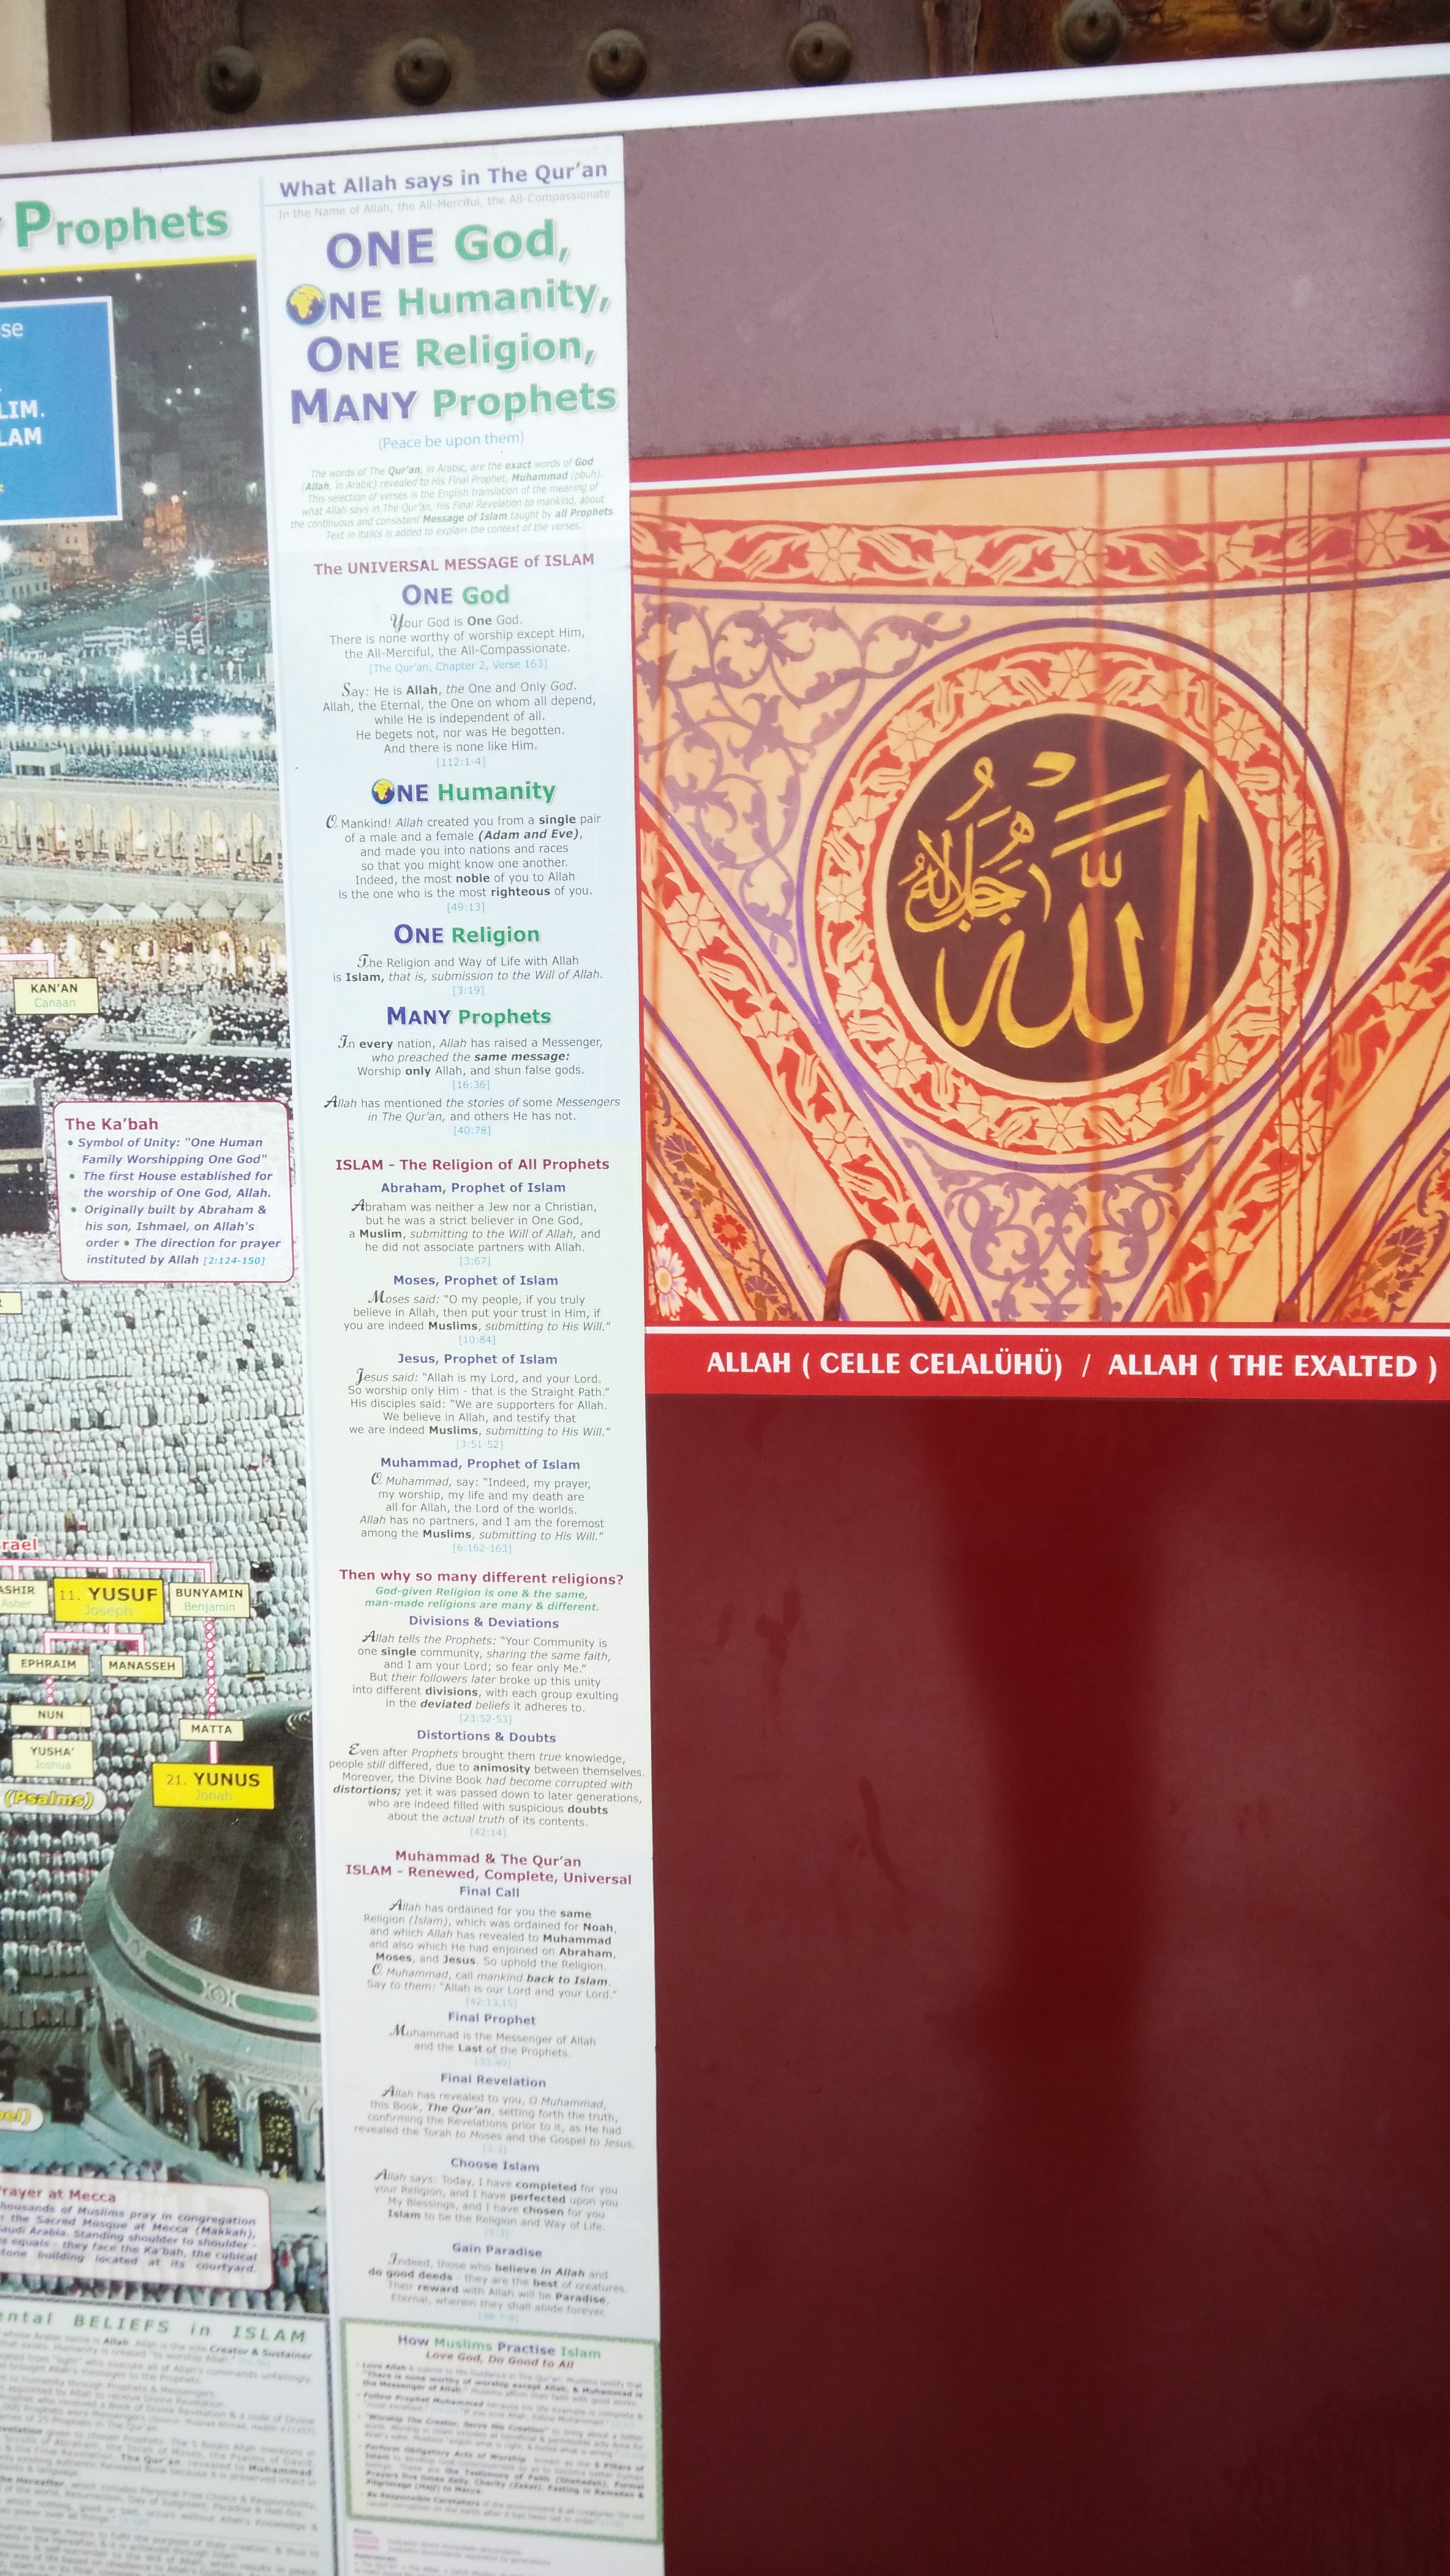 Prophets
se
LIM.
LAM
KAN'AN
Canaan
The Ka'bah
• Symbol of Unity: "One Human
Family Worshipping One God"
• The first House established for
the worship of One God, Allah.
• Originally built by Abraham &
his son, Ishmael, on Allah's
order • The direction for prayer
instituted by Allah [2:124-150]
rael
ASHIR
Asher
11. YUSUF
Joseph
BUNYAMIN
Benjamin
EPHRAIM
MANASSEH
NUN
MATTA
YUSHA'
Joshua
21. YUNUS
Jonah
(Psalms)
el)
rayer at Mecca
housands of Muslims pray in congregation
the Sacred Mosque at Mecca (Makkah),
audi Arabia. Standing shoulder to shoulder -
s equals - they face the Ka'bah, the cubical
tone building located at its courtyard.
ental BELIEFS in ISLAM
What Allah says in The Qur'an
In the Name of Allah, the All-Merciful, the All-Compassionate
ONE God,
ONE Humanity,
ONE Religion,
MANY Prophets
(Peace be upon them)
The words of The Qur'an, in Arabic, are the exact words of God
(Allah, in Arabic) revealed to His Final Prophet, Muhammad (pbuh).
This selection of verses is the English translation of the meaning of
what Allah says in The Qur'an, His Final Revelation to mankind, about
the continuous and consistent Message of Islam taught by all Prophets.
Text in italics is added to explain the context of the verses.
The UNIVERSAL MESSAGE of ISLAM
ONE God
Your God is One God.
There is none worthy of worship except Him,
the All-Merciful, the All-Compassionate.
[The Qur'an, Chapter 2, Verse 163]
Say: He is Allah, the One and Only God.
Allah, the Eternal, the One on whom all depend,
while He is independent of all.
He begets not, nor was He begotten.
And there is none like Him.
[112:1-4]
ONE Humanity
O Mankind! Allah created you from a single pair
of a male and a female (Adam and Eve),
and made you into nations and races
so that you might know one another.
Indeed, the most noble of you to Allah
is the one who is the most righteous of you.
[49:13]
ONE Religion
The Religion and Way of Life with Allah
is Islam, that is, submission to the Will of Allah.
[3:19]
MANY Prophets
In every nation, Allah has raised a Messenger,
who preached the same message:
Worship only Allah, and shun false gods.
[16:36]
Allah has mentioned the stories of some Messengers
in The Qur'an, and others He has not.
[40:78]
ISLAM - The Religion of All Prophets
Abraham, Prophet of Islam
Abraham was neither a Jew nor a Christian,
but he was a strict believer in One God,
a Muslim, submitting to the Will of Allah, and
he did not associate partners with Allah.
[3:67]
Moses, Prophet of Islam
Moses said: "O my people, if you truly
believe in Allah, then put your trust in Him, if
you are indeed Muslims, submitting to His Will."
[10:84]
Jesus, Prophet of Islam
Jesus said: "Allah is my Lord, and your Lord.
So worship only Him - that is the Straight Path."
His disciples said: "We are supporters for Allah.
We believe in Allah, and testify that
we are indeed Muslims, submitting to His Will."
[3:51-52]
Muhammad, Prophet of Islam
O Muhammad, say: "Indeed, my prayer,
my worship, my life and my death are
all for Allah, the Lord of the worlds.
Allah has no partners, and I am the foremost
among the Muslims, submitting to His Will."
[6:162-163]
Then why so many different religions?
God-given Religion is one & the same,
man-made religions are many & different.
Divisions & Deviations
Allah tells the Prophets: "Your Community is
one single community, sharing the same faith,
and I am your Lord; so fear only Me."
But their followers later broke up this unity
into different divisions, with each group exulting
in the deviated beliefs it adheres to.
[23:52-53]
Distortions & Doubts
Even after Prophets brought them true knowledge,
people still differed, due to animosity between themselves.
Moreover, the Divine Book had become corrupted with
distortions; yet it was passed down to later generations,
who are indeed filled with suspicious doubts
about the actual truth of its contents.
[42:14]
Muhammad & The Qur'an
ISLAM - Renewed, Complete, Universal
Final Call
Allah has ordained for you the same
Religion (Islam), which was ordained for Noah,
and which Allah has revealed to Muhammad
and also which He had enjoined on Abraham,
Moses, and Jesus. So uphold the Religion.
O Muhammad, call mankind back to Islam.
Say to them: "Allah is our Lord and your Lord."
[42:13,15]
Final Prophet
Muhammad is the Messenger of Allah
and the Last of the Prophets.
[33:40]
Final Revelation
Allah has revealed to you, O Muhammad,
this Book, The Qur'an, setting forth the truth,
confirming the Revelations prior to it, as He had
revealed the Torah to Moses and the Gospel to Jesus.
[3:3]
Choose Islam
Allah says: Today, I have completed for you
your Religion, and I have perfected upon you
My Blessings, and I have chosen for you
Islam to be the Religion and Way of Life.
[5:3]
Gain Paradise
Indeed, those who believe in Allah and
do good deeds - they are the best of creatures.
Their reward with Allah will be Paradise,
Eternal, wherein they shall abide forever.
How Muslims Practise Islam
Love God, Do Good to All
الله
جل جلاله
ALLAH ( CELLE CELALÜHÜ) / ALLAH ( THE EXALTED )